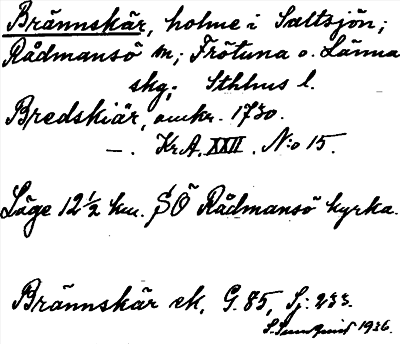 Brännskär, holme i Saltsjön;
Rådmansö sn; Frötuna o. Länna
skg; Sthlms l.
Bredskiär, omkr. 1730.
—. Kr.A. XXII. N:o 15.
Läge 12½ km. SÖ Rådmansö kyrka.
Brännskär ek. G. 85, Sj: 233.
1936.